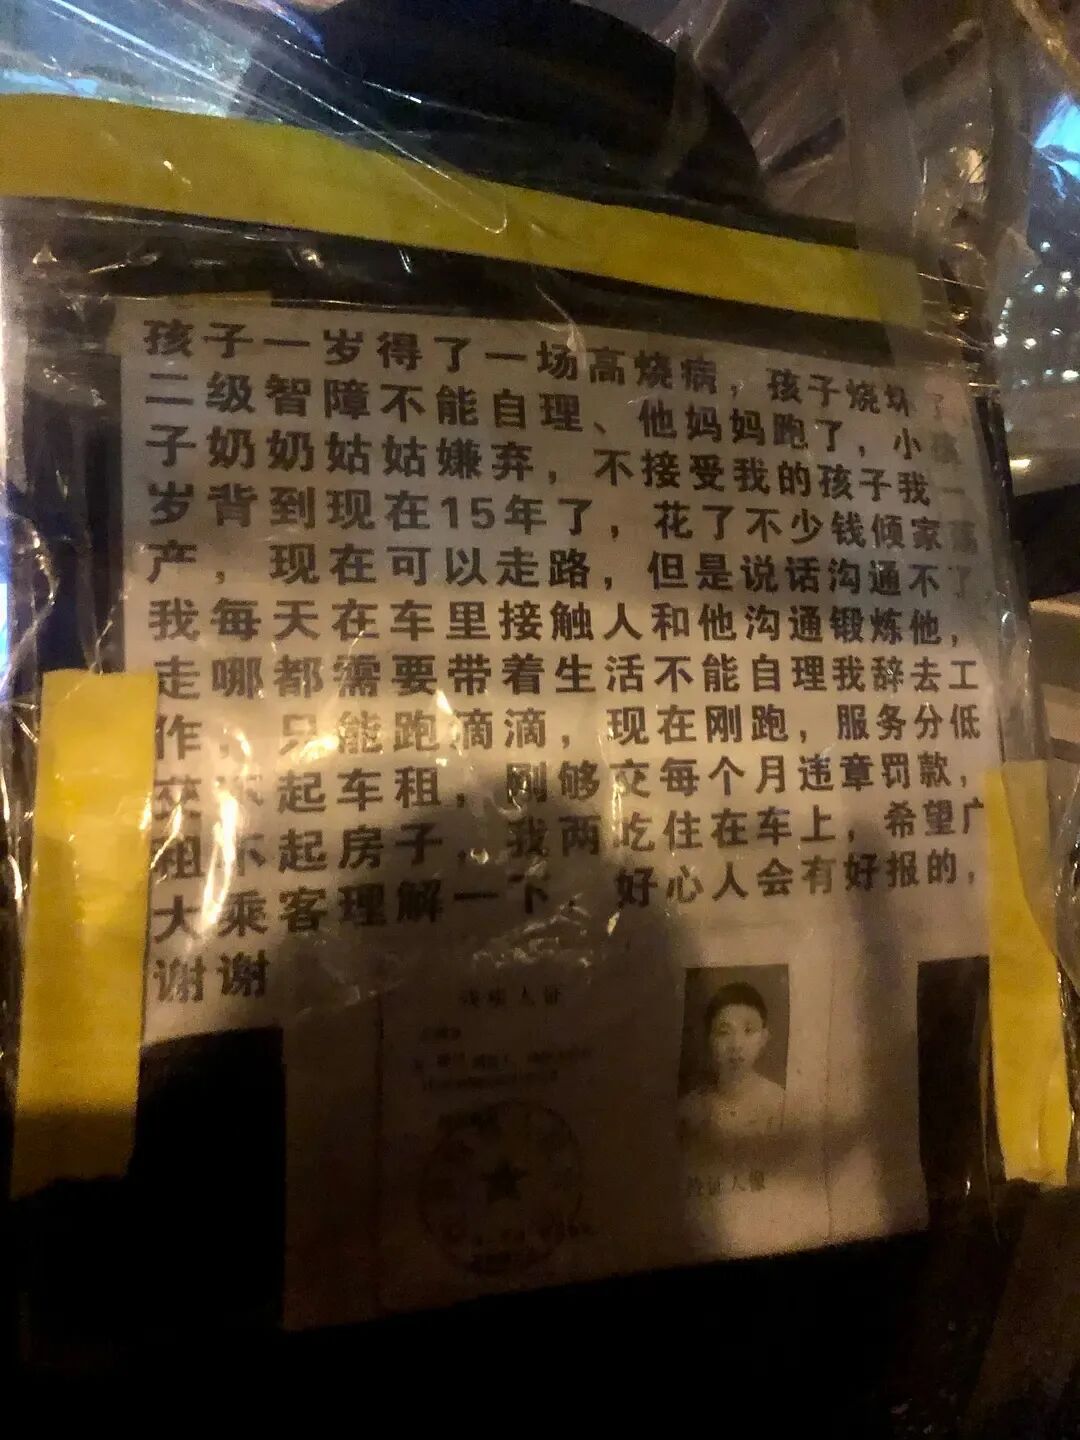 孩子一岁得了一场高烧病，孩子烧坏了，
二级智障不能自理、他妈妈跑了，小孩
子奶奶姑姑嫌弃，不接受我的孩子我一
岁背到现在15年了，花了不少钱倾家荡
产，现在可以走路，但是说话沟通不了
我每天在车里接触人和他沟通锻炼他，
走哪都需要带着生活不能自理我辞去工
作，只能跑滴滴，现在刚跑，服务分低
获不起车租，刚够交每个月违章罚款，
租不起房子，我两吃住在车上，希望广
大乘客理解一下，好心人会有好报的，
谢谢
残疾人证
持证人像